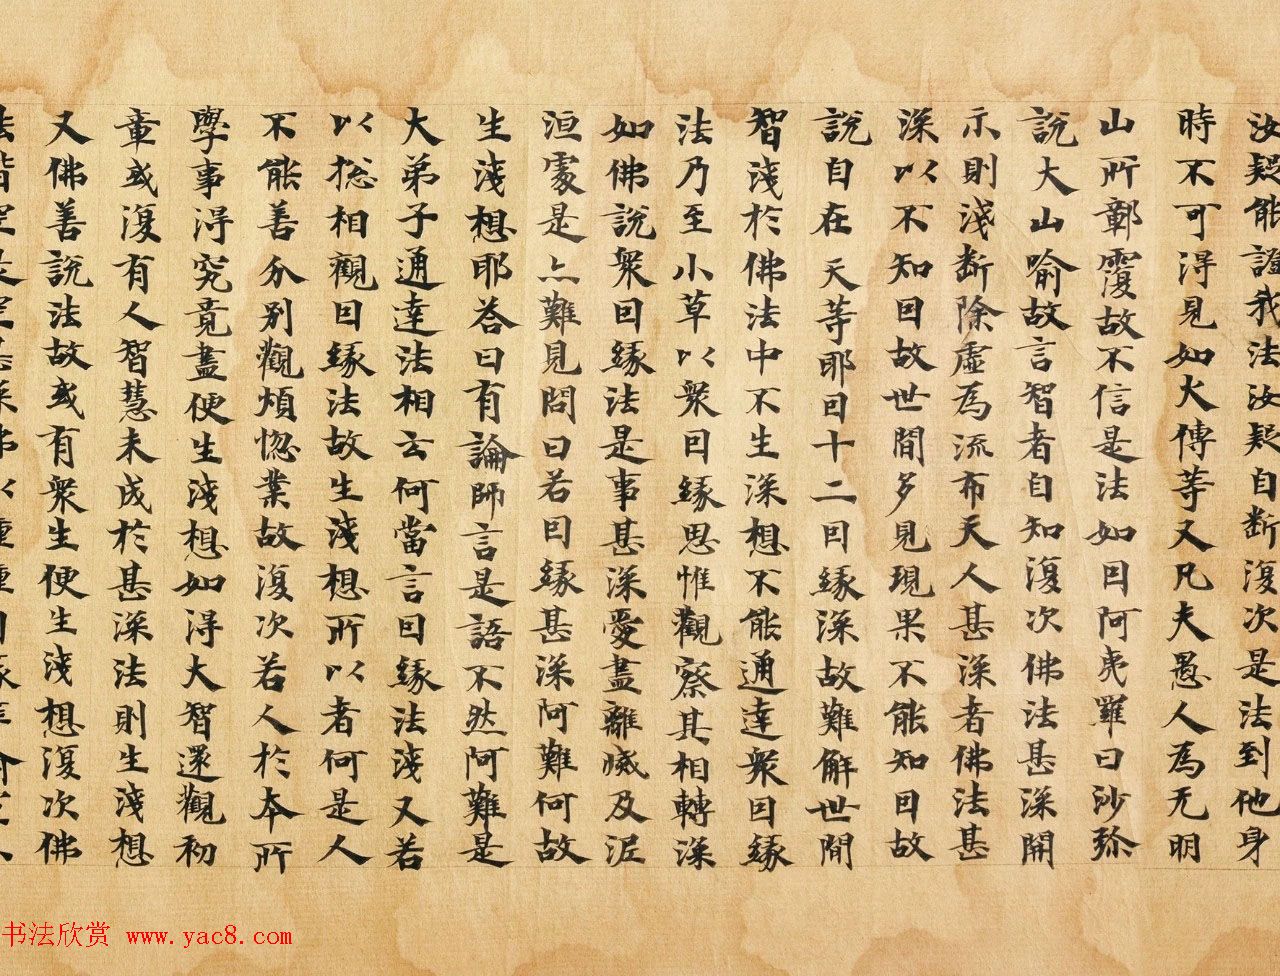 汝疑能證我法汝疑自断復次是法到他身
時不可得見如火傳等又凡夫愚人為无明
山所鄣覆故不信是法如因阿夷羅曰沙弥
說大山喻故言智者自知復次佛法甚深開
示則淺断除虛為流布天人甚深者佛法甚
深以不知因故世間多見現果不能知因故
說自在天等耶因十二因緣深故難解世間
智淺於佛法中不生深想不能通達衆因緣
法乃至小草以衆因緣思惟觀察其相轉深
如佛說衆因緣法是事甚深愛盡離滅及泥
洹處是亦難見問曰若因緣甚深阿難何故
生淺想耶荅曰有論師言是語不然阿難是
大弟子通達法相云何當言因緣法淺又若
以揔相觀因緣法故生淺想所以者何是人
不能善分别觀煩惚業故復次若人於本所
學事得究竟盡便生淺想如得大智還觀初
章或復有人智慧未成於甚深法則生淺想
又佛善說法故或有衆生便生淺想復次佛
书法欣赏 www.yac8.com